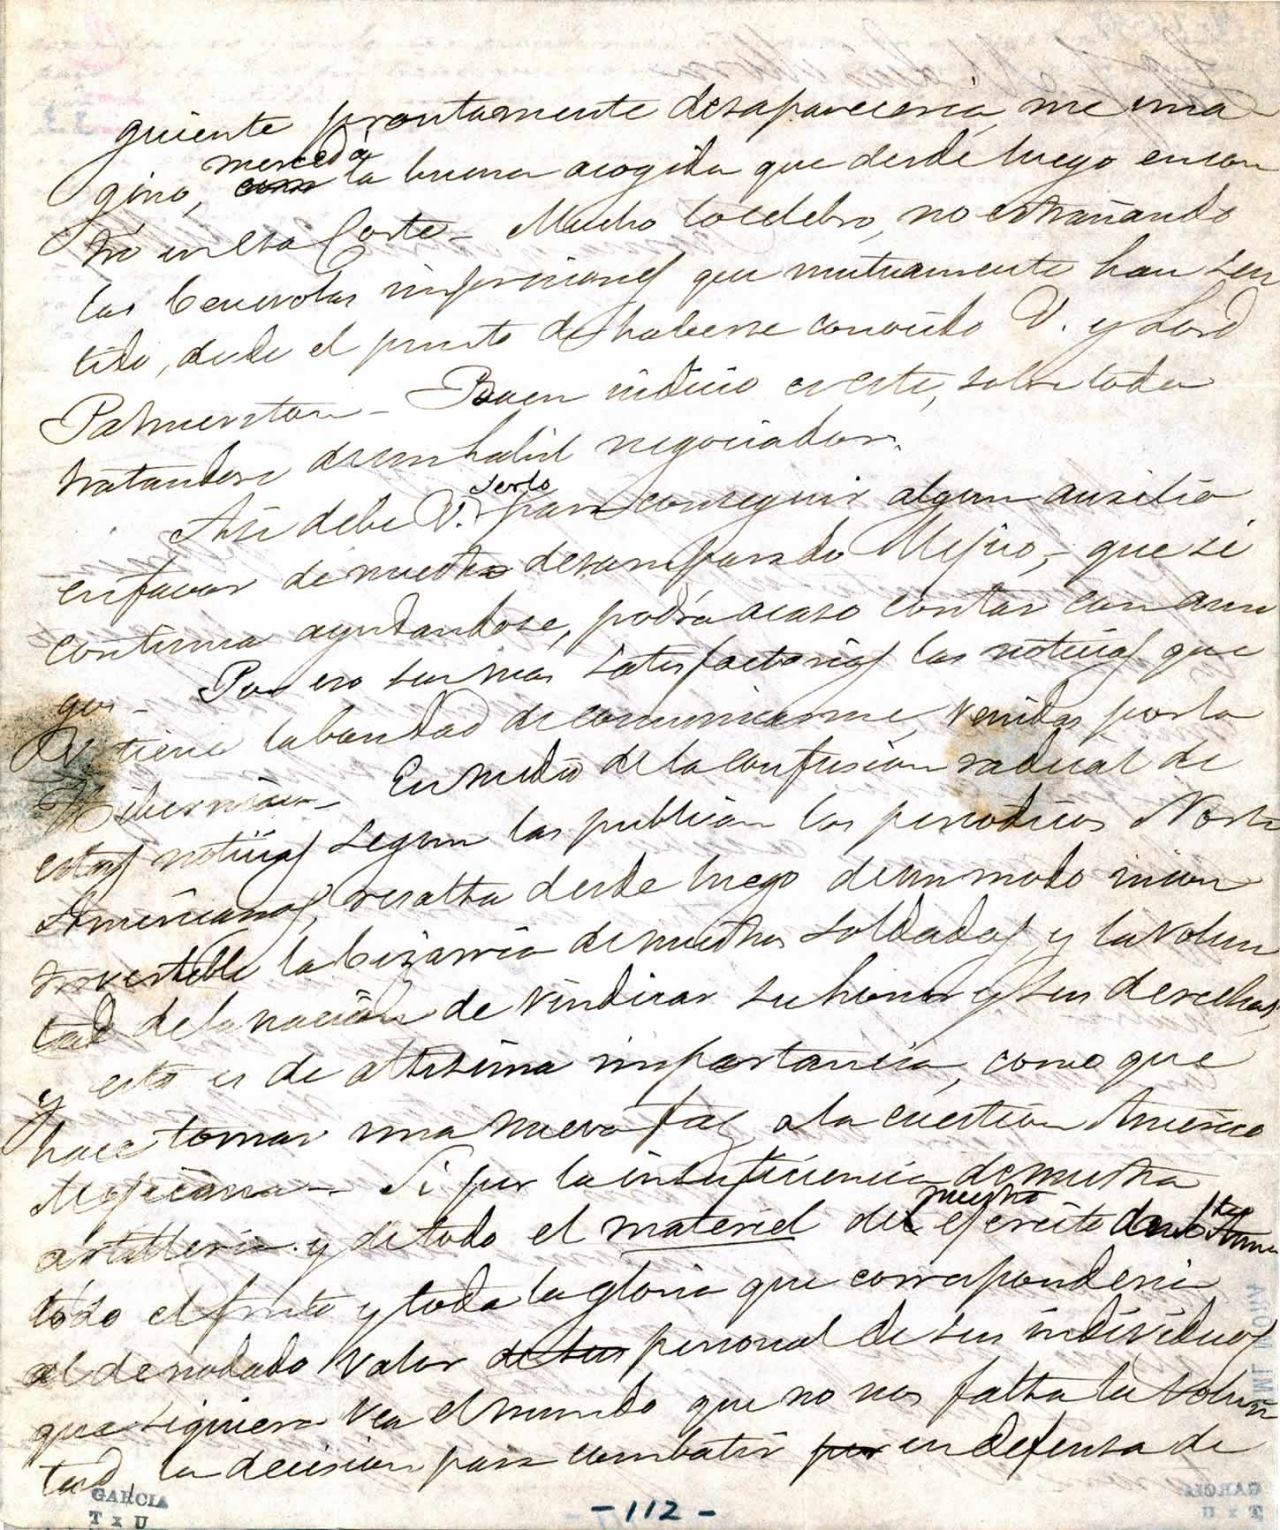 guiente prontamente desapareceria, me ima
gino, merced á la buena acogida que desde luego encon
tró en esa Corte - Mucho lo celebro, no estrañando
las benevolas impresiones que mutuamente han sen
tido, desde el punto de haberse conocido V. y Lord
Palmerston - Buen indicio es este, sobre todo
tratandose de un habil negociador.
Asi debe V. serlo para conseguir algun ausilio
en favor de nuestro desamparado Mejico, que si
continua ayudandose, podrá acaso contar con ami
gos - Por eso son mas satisfactorias las noticias que
V. tiene la bondad de comunicarme, venidas por la
Hibernia - En medio de la confusion radical de
estas noticias segun las publican los periodicos Norte
Americanos, resalta desde luego de un modo incon
trovertible la bizarria de nuestros soldados y la volun
tad de la nacion de vindicar su honor y sus derechos,
y esto es de altisima importancia, como que
hace tomar una nueva faz a la cuestion Americo
Mejicana - Si por la insuficiencia de nuestra
artilleria y de todo el material del nuestro ejercito
todo el fruto y toda la gloria que corresponderia
al denodado valor de sus personal de sus individuos
que siquiera vea el mundo que no nos falta la volun
tad, la decision para combatir por en defensa de
GARCIA
T x U
- 112 -